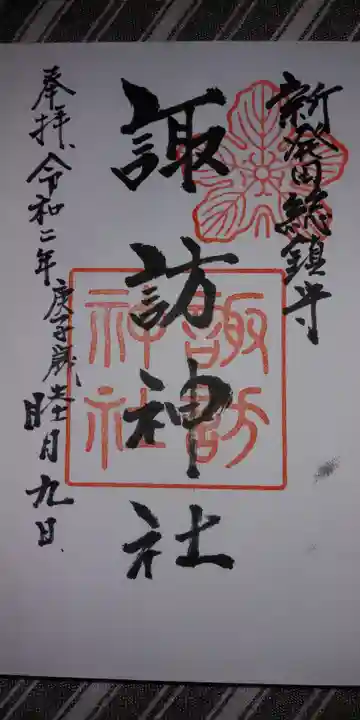 新発田総鎮守
諏訪神社
諏訪
神社
奉拝、令和二年庚子歳 睦月九日